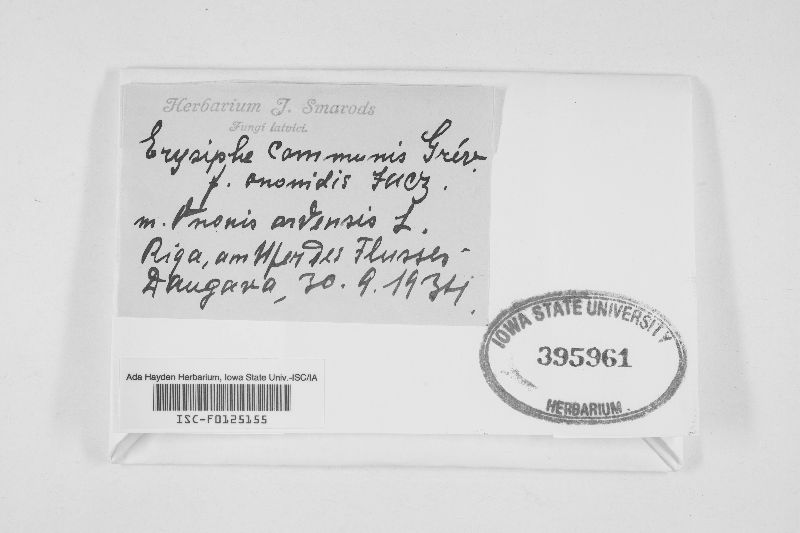 Herbarium J. Smarods
Fungi latvici.
Erysiphe communis Grév.
f. ononidis Jacz.
m. Ononis arvensis L.
Riga, am Ufer des Flusses
Daugava, 30. 9. 1934.
IOWA STATE UNIVERSITY
395961
HERBARIUM
Ada Hayden Herbarium, Iowa State Univ.-ISC/IA
ISC-F0125155